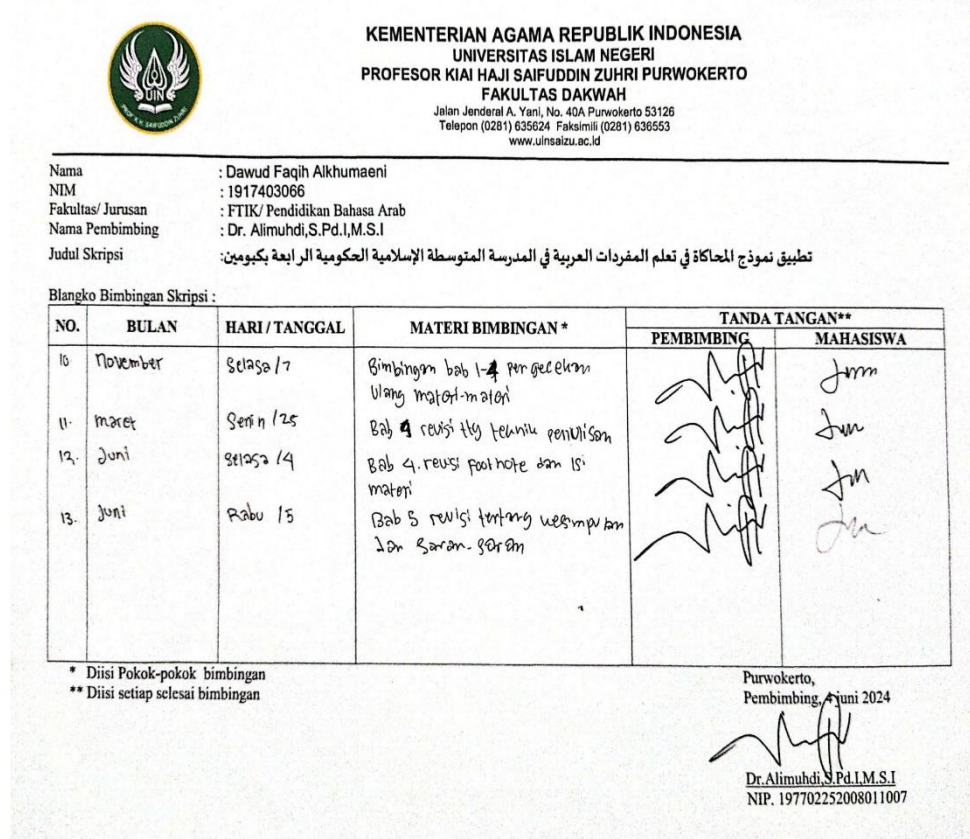 UIN
PROF. K.H. SAIFUDDIN ZUHRI
KEMENTERIAN AGAMA REPUBLIK INDONESIA
UNIVERSITAS ISLAM NEGERI
PROFESOR KIAI HAJI SAIFUDDIN ZUHRI PURWOKERTO
FAKULTAS DAKWAH
Jalan Jenderal A. Yani, No. 40A Purwokerto 53126
Telepon (0281) 635624 Faksimili (0281) 636553
www.uinsaizu.ac.id
Nama : Dawud Faqih Alkhumaeni
NIM : 1917403066
Fakultas/ Jurusan : FTIK/ Pendidikan Bahasa Arab
Nama Pembimbing : Dr. Alimuhdi,S.Pd.I,M.S.I
Judul Skripsi :تطبيق نموذج المحاكاة في تعلم المفردات العربية في المدرسة المتوسطة الإسلامية الحكومية الرابعة بكبومين
Blangko Bimbingan Skripsi :
NO. BULAN HARI / TANGGAL MATERI BIMBINGAN * TANDA TANGAN**
PEMBIMBING MAHASISWA
10 November Selasa /7 Bimbingan bab 1-4 pengecekan
Ulang materi-materi
11. maret Senin /25 Bab 4 revisi ttg teknik penulisan
12. Juni selasa /4 Bab 4. revisi footnote dan isi
materi
13. Juni Rabu /5 Bab 5 revisi tentang kesimpulan
dan saran-saran
* Diisi Pokok-pokok bimbingan
** Diisi setiap selesai bimbingan
Purwokerto,
Pembimbing, 4 juni 2024
Dr.Alimuhdi,S.Pd.I,M.S.I
NIP. 197702252008011007